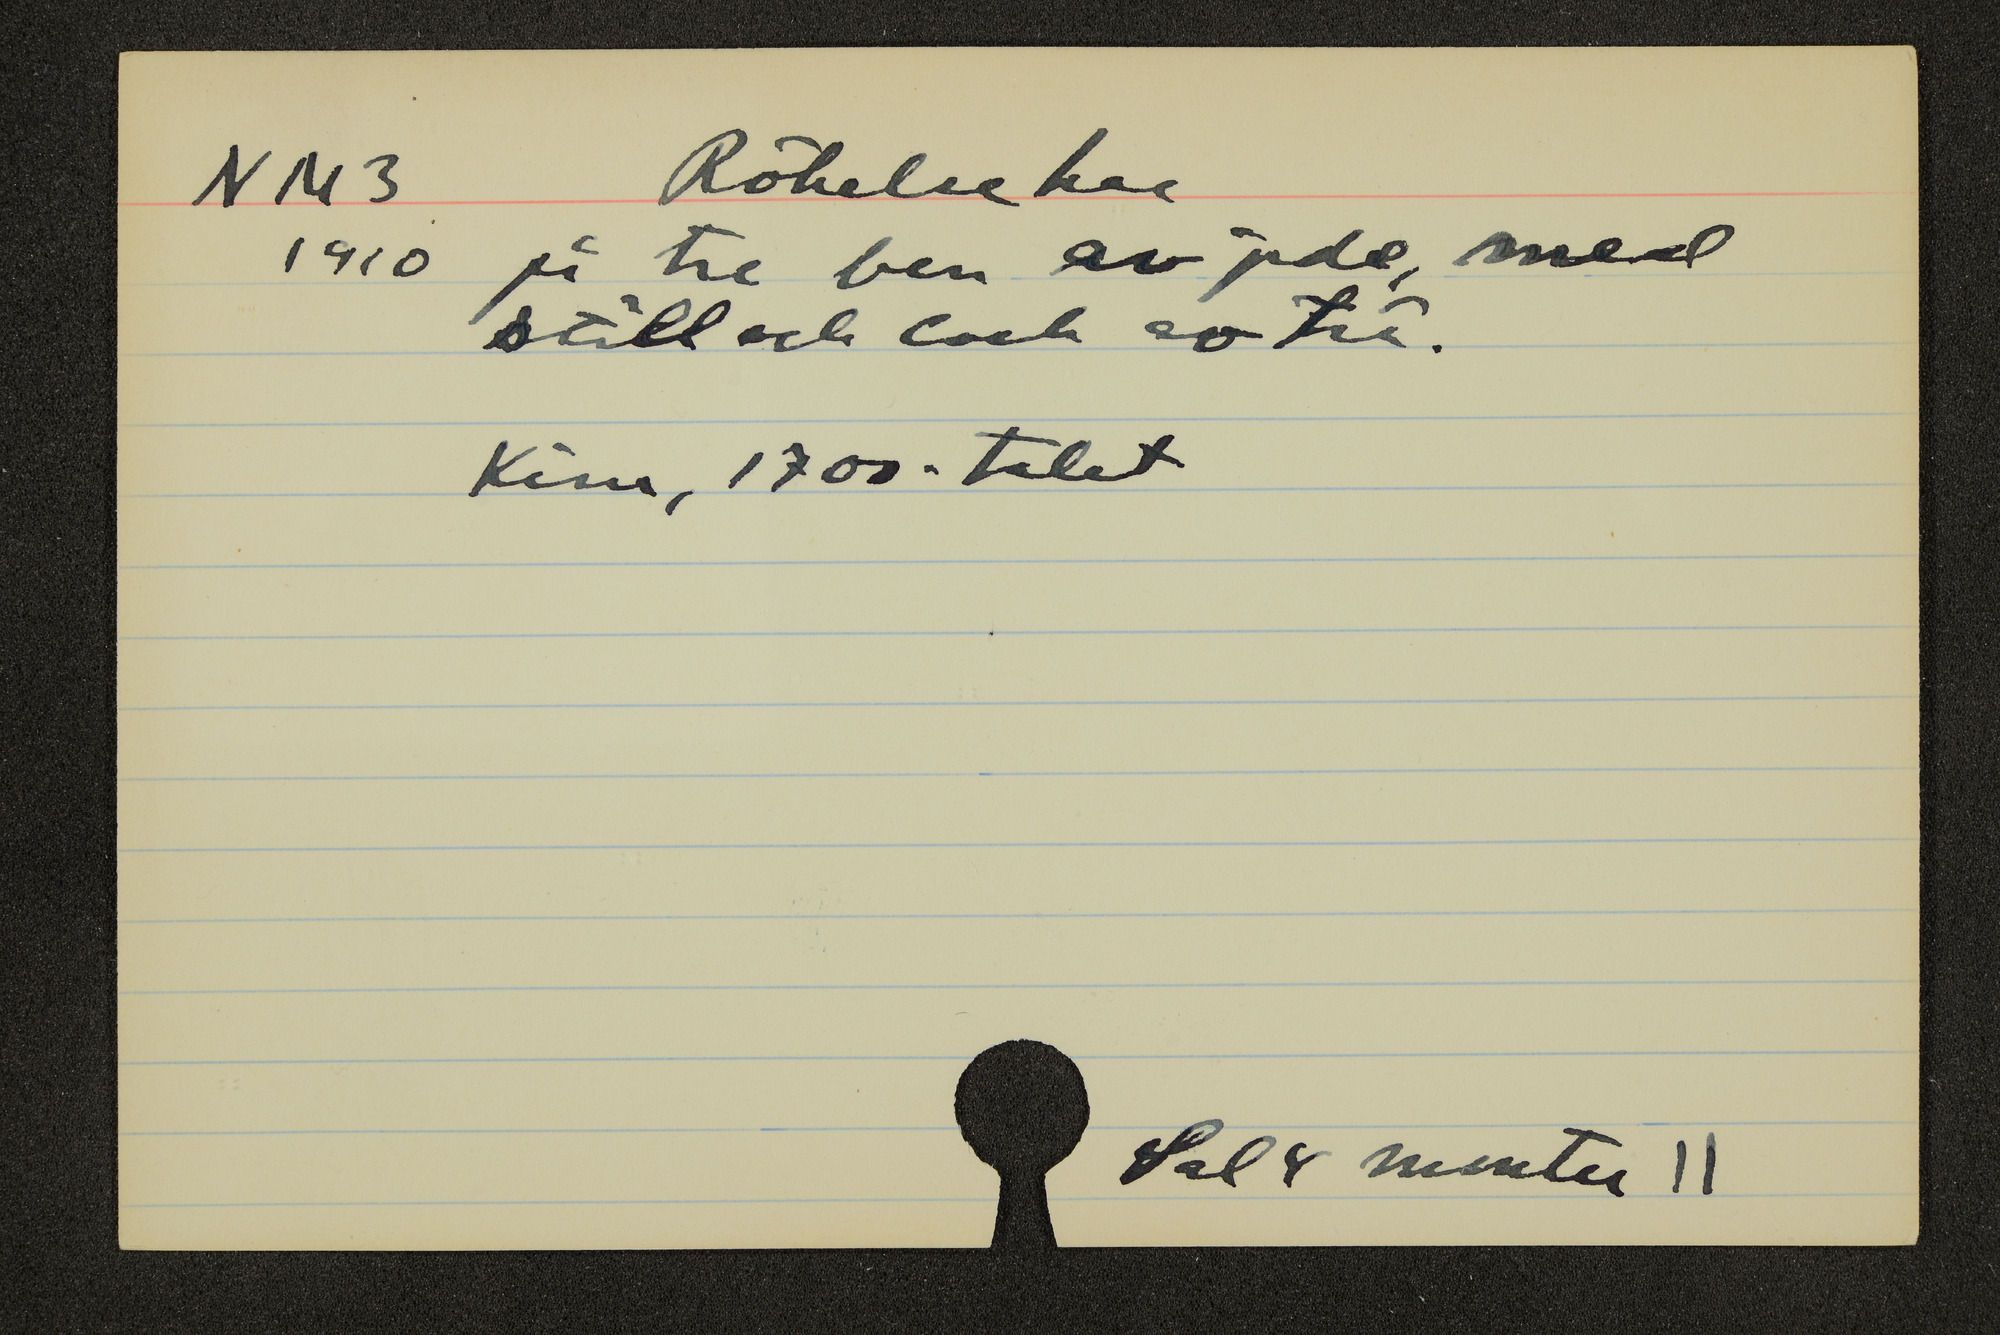 NM3 Rökelsekar
1910 på tre ben av jade, med
ställ och lock av trä.
Kina, 1700-talet
Sal 8 monter 11